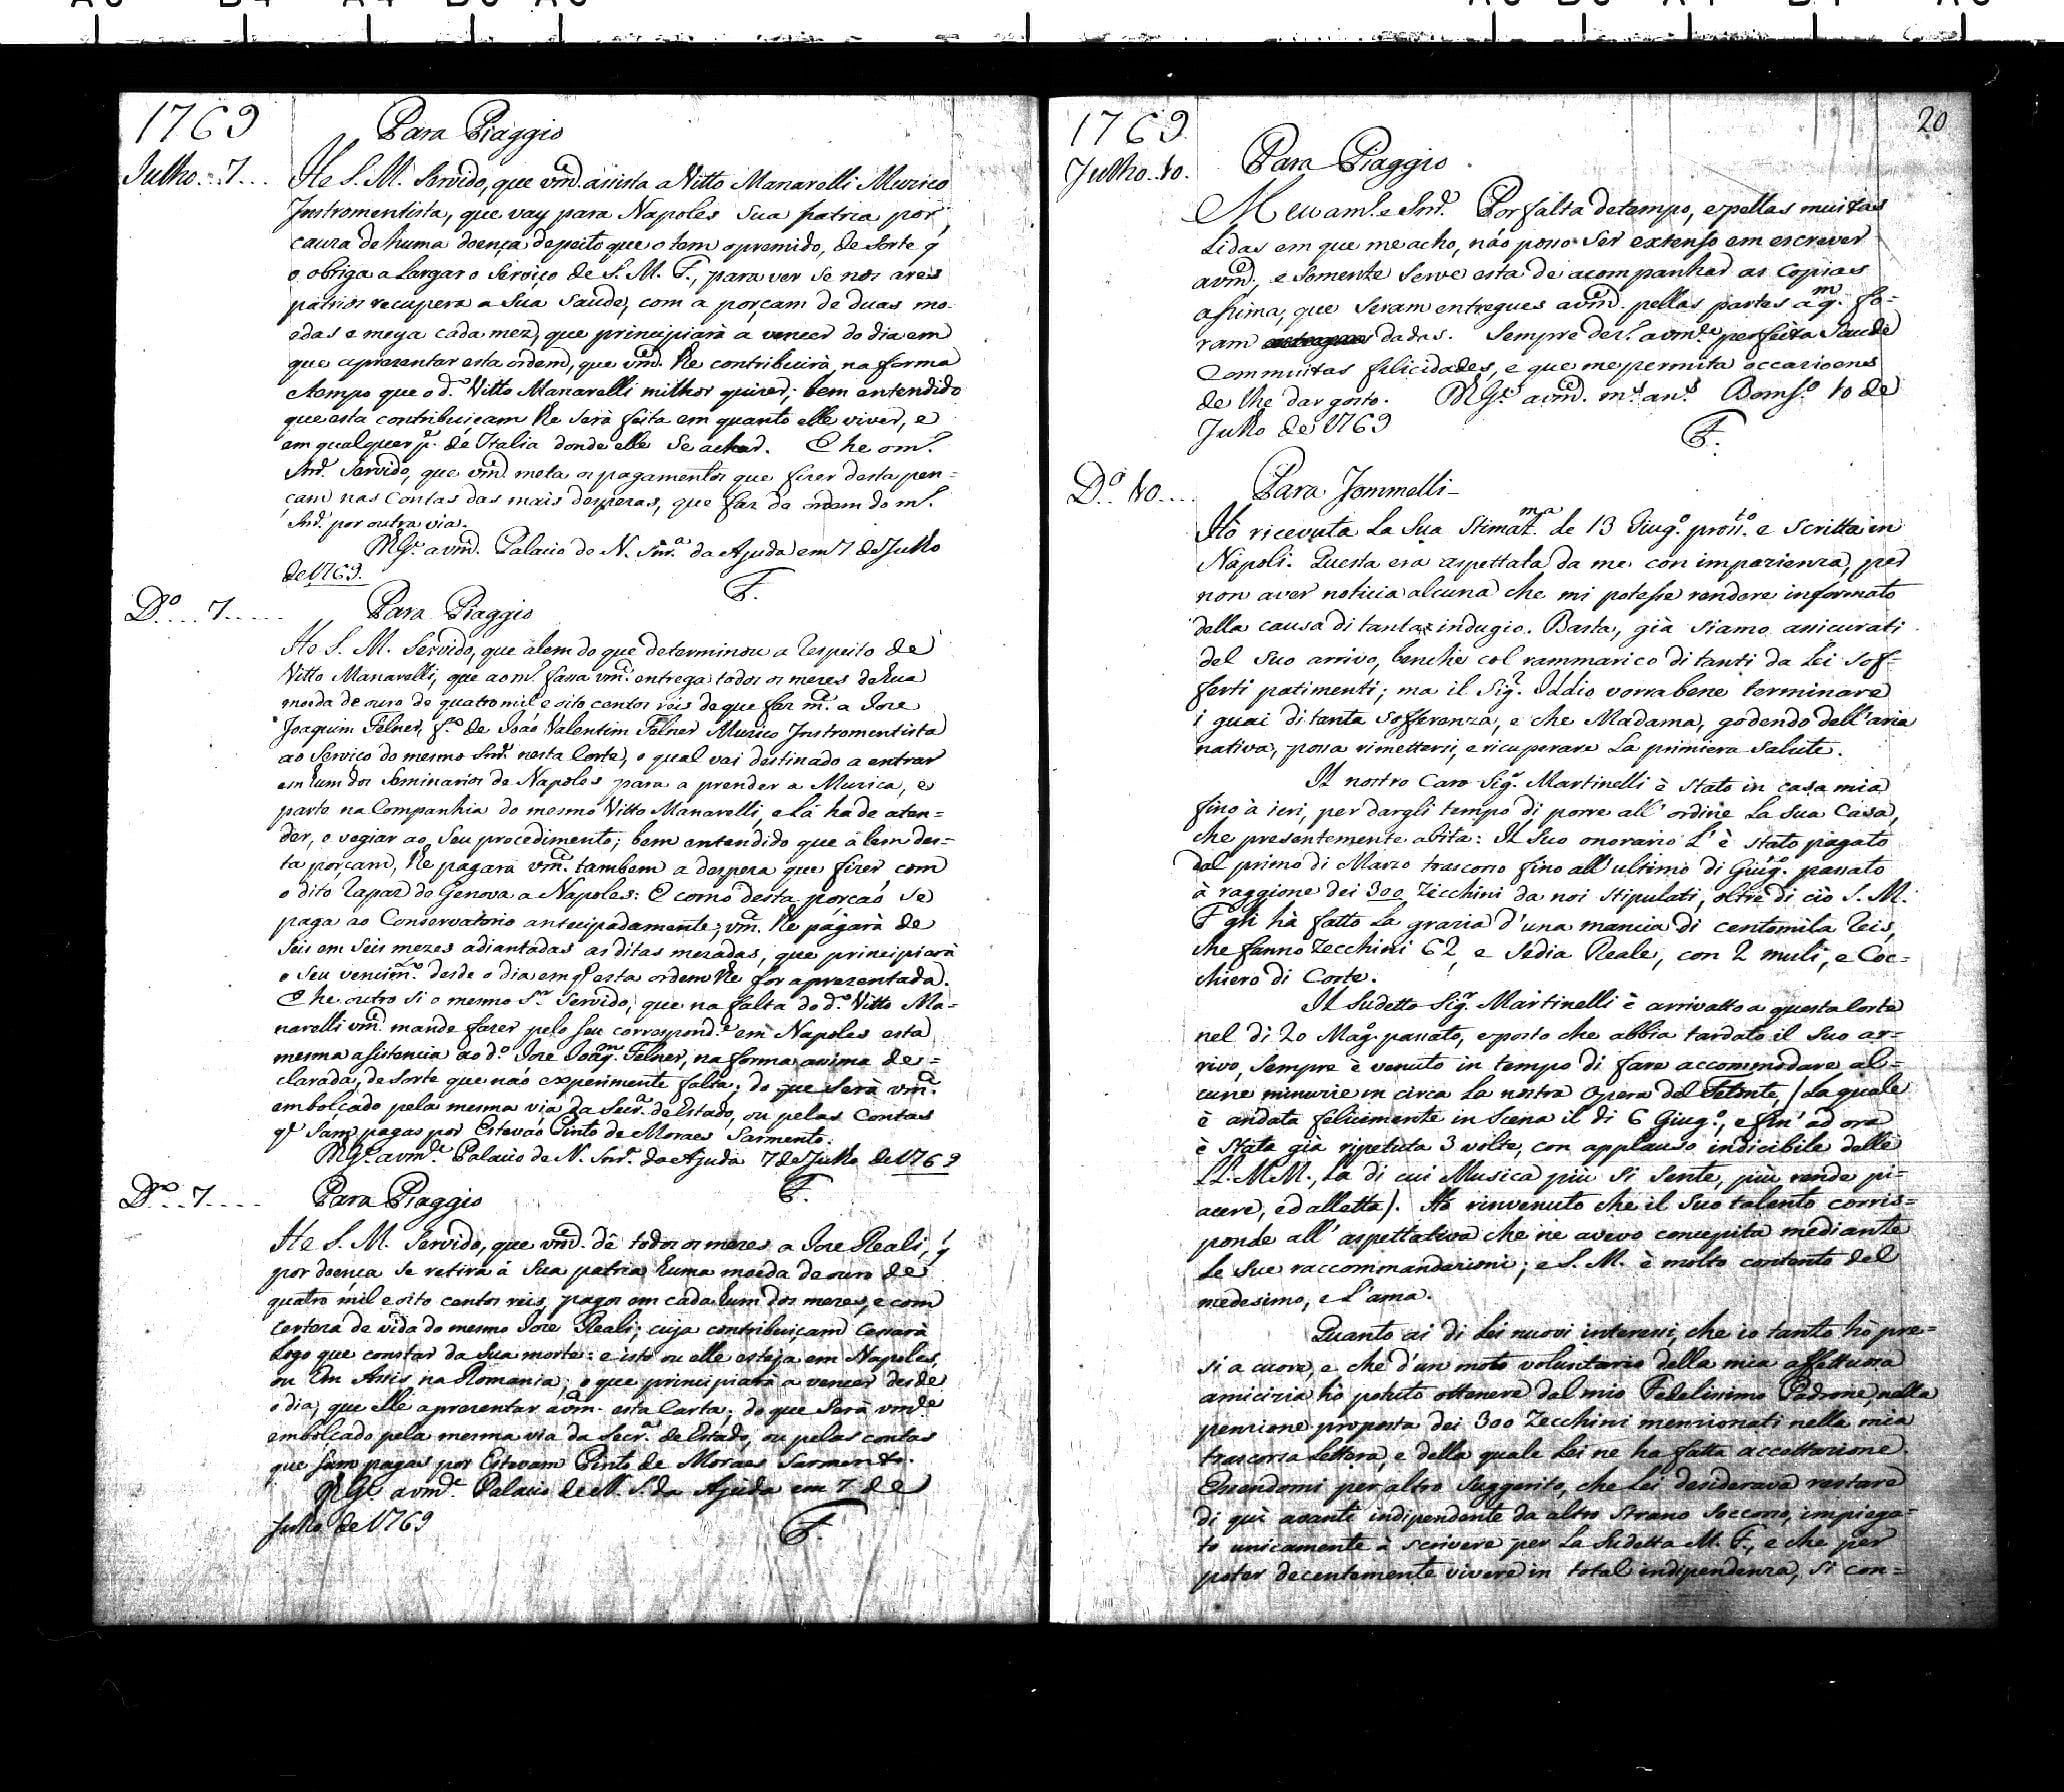 1769
Para Piaggio
Julho...7...
He S. M. Servido, que vm.ce assista a Vitto Manarelli Muzico
Instromentista, que vay para Napoles sua patria por
cauza de huma doença de peito que o tem opremido, de Sorte q̃
o obriga a Largar o Serviço de S. M. F., para ver se nos ares
patrios recupera a Sua Saude, com a porçam de duas mo-
edas e meya cada mez, que principiarà a vencer do dia em
que aprezentar esta ordem, que vm.ce lhe contribuirà, na forma
e tempo que o d.o Vitto Manarelli milhor quizer; bem entendido
que esta contribuiçam lhe serà feita em quanto elle viver, e
em qualquer p.e de Italia donde elle Se achar. E he o m.o
Snr. Servido, que vm.ce meta os pagamentos que fizer desta pen=
çam nas Contas das mais despezas, que faz de ordem do m.o
Snr. por outra via.
D.s G.e a vm.ce Palacio de N. Snr.a da Ajuda em 7 de Julho
de 1769.
F.
D.o....7.....
Para Piaggio
He S. M. Servido, que alem do que determinou a Respeito de
Vitto Manarelli, que ao m.o fassa vm.ce entrega todos os mezes de hua
moeda de ouro de quatro mil e oito centos reis de que faz m.ce a Joze
Joaquim Felner, f.o de Joaõ Valentim Felner Muzico Instromentista
ao Serviço do mesmo Snr. nesta Corte, o qual vai destinado a entrar
em hum dos Seminarios de Napoles para a prender a Muzica, e
parte na Companhia do mesmo Vitto Manarelli, e Là ha de aten=
der, e vegiar ao Seu procedimento; bem entendido que àlem des=
ta porçam, lhe pagarà vm.ce tambem a despeza que fizer com
o dito Rapaz de Genova a Napoles: E como desta porçaõ se
paga ao Conservatorio antecipadamente; vm.ce lhe pagarà de
Seis em Seis mezes adiantadas as ditas mezadas, que principiarà
o Seu vencim.to desde o dia em q̃ esta ordem lhe for aprezentada.
E he outro si o mesmo S.r Servido, que na falta do d.o Vitto Ma=
narelli vm.ce mande fazer pelo seu correspond.e em Napoles esta
mesma asistencia ao d.o Joze Joaq.m Felner, na forma assima de=
clarada, de Sorte que naõ experimente falta; do que Serà vm.ce
embolçado pela mesma via da Secr.a de Estado, ou pelas Contas
q̃ Sam pagas por Estevaõ Pinto de Moraes Sarmento.
D.s G.e a vm.ce Palacio de N. Snr.a da Ajuda 7 de Julho de 1769
F.
D.o...7....
Para Piaggio
He S. M. Servido, que vm.ce dê todos os mezes a Joze Reali, q̃
por doença se retira à Sua patria huma moeda de ouro de
quatro mil e oito centos reis, pagos em cada hum dos mezes, e com
certeza de vida do mesmo Joze Reali; cuja contribuiçam Cessarà
Logo que constar da Sua morte: e isto ou elle esteja em Napoles,
ou Em Assis na Romania; o que principiarà a vencer desde
o dia, que elle aprezentar a vm.ce esta Carta; do que Serà vm.ce
embolçado pela mesma via da Secr.a de Estado, ou pelas contas
que sam pagas por Estevam Pinto de Moraes Sarmento.
D.s G.e a vm.ce Palacio de N. S. da Ajuda em 7 de
Julho de 1769
F.
20
1769
Julho..10.
Para Piaggio
Meu am.o e Snr. Por falta de tempo, e pellas muitas
Lidas em que me acho, não posso ser extenso em escrever
a vm.ce, e Somente Serve esta de acompanhar as Copias
assima, que seram entregues a vm.ce pellas partes a q.m fo=
ram dadas. Sempre dez.o a vm.ce perfeita Saude
Com muitas felicidades, e que me permita occazioens
de lhe dar gosto. D.s G.e a vm.ce m.s an.s Bomf.o 10 de
Julho de 1769
F.
D.o 10....
Para Jommelli
Hò ricevuta La Sua Stimat.ma de 13 Giug.o pros.o e Scritta in
Napoli. Questa era aspettata da me con impazienza, per
non aver noticia alcuna che mi potesse rendere informato
della causa di tanta indugio. Basta, già siamo assicurati
del Suo arrivo, benche col rammarico di tanti da Lei Sof-
ferti patimenti; ma il Sig.r Iddio vorra bene terminare
i guai di tanta Sofferenza, e che Madama, godendo dell'aria
nativa, possa rimettersi, e ricuperare La primiera Salute.
Il nostro Caro Sig.r Martinelli è Stato in casa mia
fino à ieri, per dargli tempo di porre all'ordine La Sua Casa,
che presentemente abita: Il Suo onorario L'è Stato pagato
dal primo di Marzo trascorso fino all'ultimo di Giug.o passato
à raggione dei 300 Zecchini da noi Stipulati, oltre di ciò S. M.
F. gli hà fatto La grazia d'una mancia di centomila Reis,
che fanno Zecchini 62, e Sedia Reale, con 2 muli, e Coc=
chiero di Corte.
Il Sudetto Sig.r Martinelli è arrivatto a questa Corte
nel di 20 Mag.o passato, e posto che abbia tardato il Suo ar=
rivo, Sempre è venuto in tempo di fare accommodare al=
cune minuzie in circa La nostra Opera del Fetonte, / La quale
è andata felicemente in Scena il di 6 Giug.o, e fin' ad ora
è Stata già ripetuta 3 volte, con applauso indicibile delle
LL. MM., La di cui Musica più Si Sente, più rende pi=
acere, ed alletta /. Hò rinvenuto che il Suo talento corris=
ponde all'aspettativa che ne avevo concepita mediante
Le Sue raccommandazioni; e S. M. è molto contento del
medesimo, e L'ama.
Quanto ai di Lei nuovi interessi, che io tanto hò pre=
si a cuore, e che d'un moto voluntario della mia affettuosa
amicizia hò potuto ottenere dal mio Fedelissimo Padrone, nella
penzione proposta dei 300 Zecchini menzionati nella mia
trascorsa Lettera, e della quale Lei ne ha fatta accettazione.
Essendomi per altro Suggerito, che Lei desiderava restare
di quì avanti indipendente da altro Strano Soccorso, impiega=
to unicamente à Scrivere per La Sudetta M. F., e che per
poter decentemente vivere in total indipendenza, Si con=